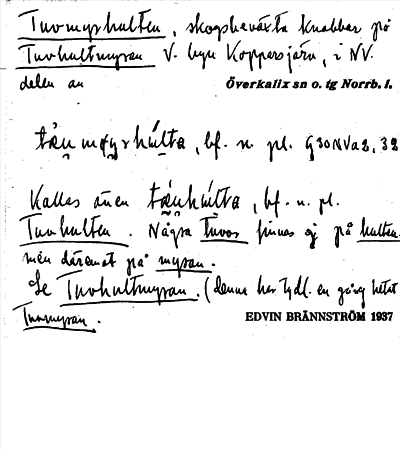 Tuvmyrhulten, skogbeväxta knabbar på
Tuvhultmyran V. byn Koppersjärn, i NV.
delen av Överkalix sn o. tg Norrb. l.
bf. n. pl. G30NVa2, 32
Kallas även bf. n. pl.
Tuvhulten. Några tuvor finnas ej på hulten
men däremot på myran.
Se Tuvhultmyran. (denna har tydl. en gång hetat
Tuvmyran.
EDVIN BRÄNNSTRÖM 1937